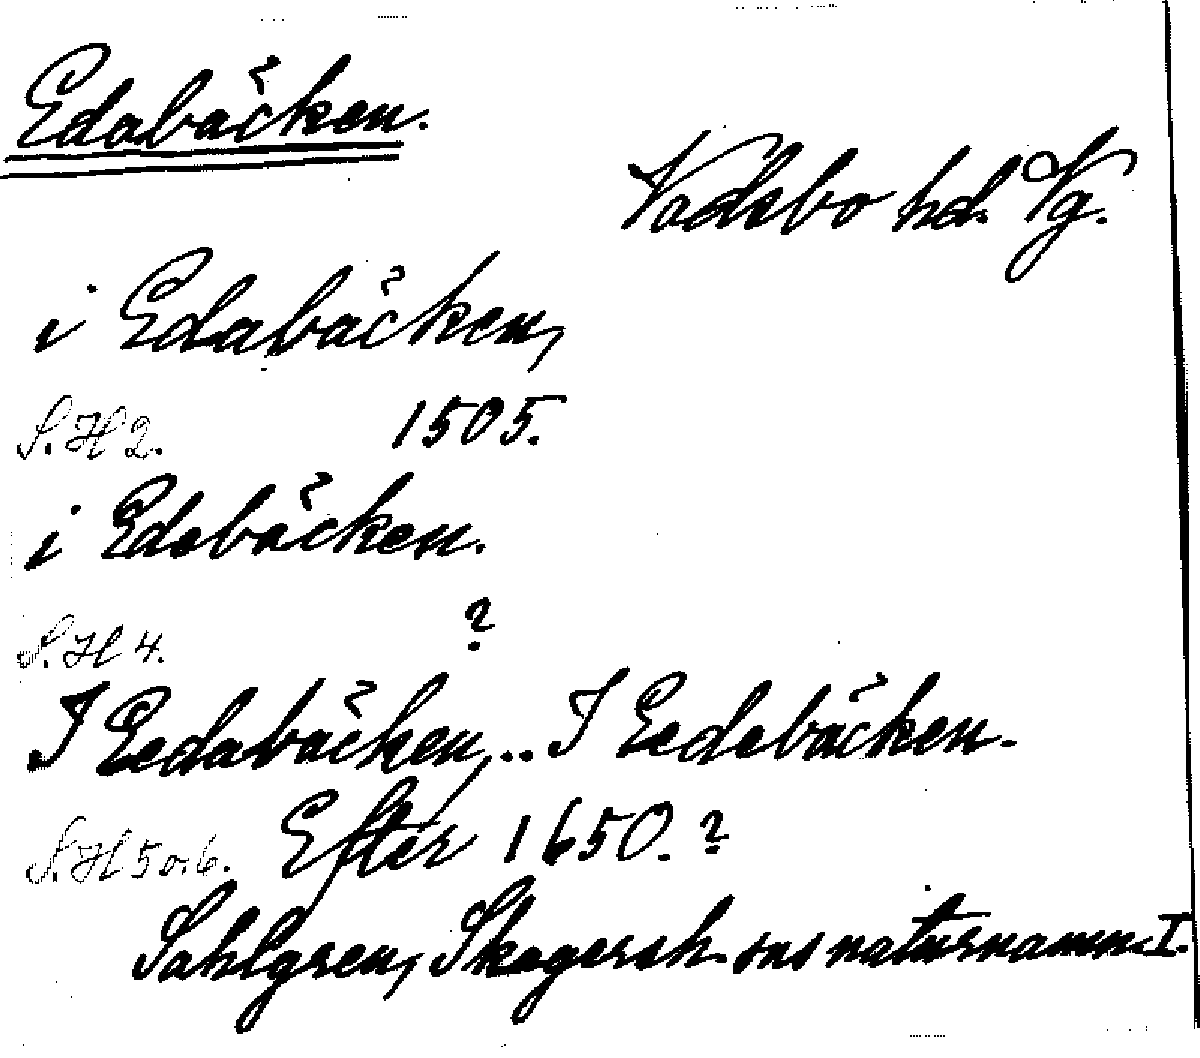 Edabäcken.
Vadsbo hd. Vg.
i Edabäcken,
S.H 2. 1505.
i Edebäcken.
S.H 4. ?
I Eedabäcken,.. I Eedebäcken.
S.H 5 o. 6. Efter 1650.?
Sahlgren, Skagersh. sns naturnamn I.